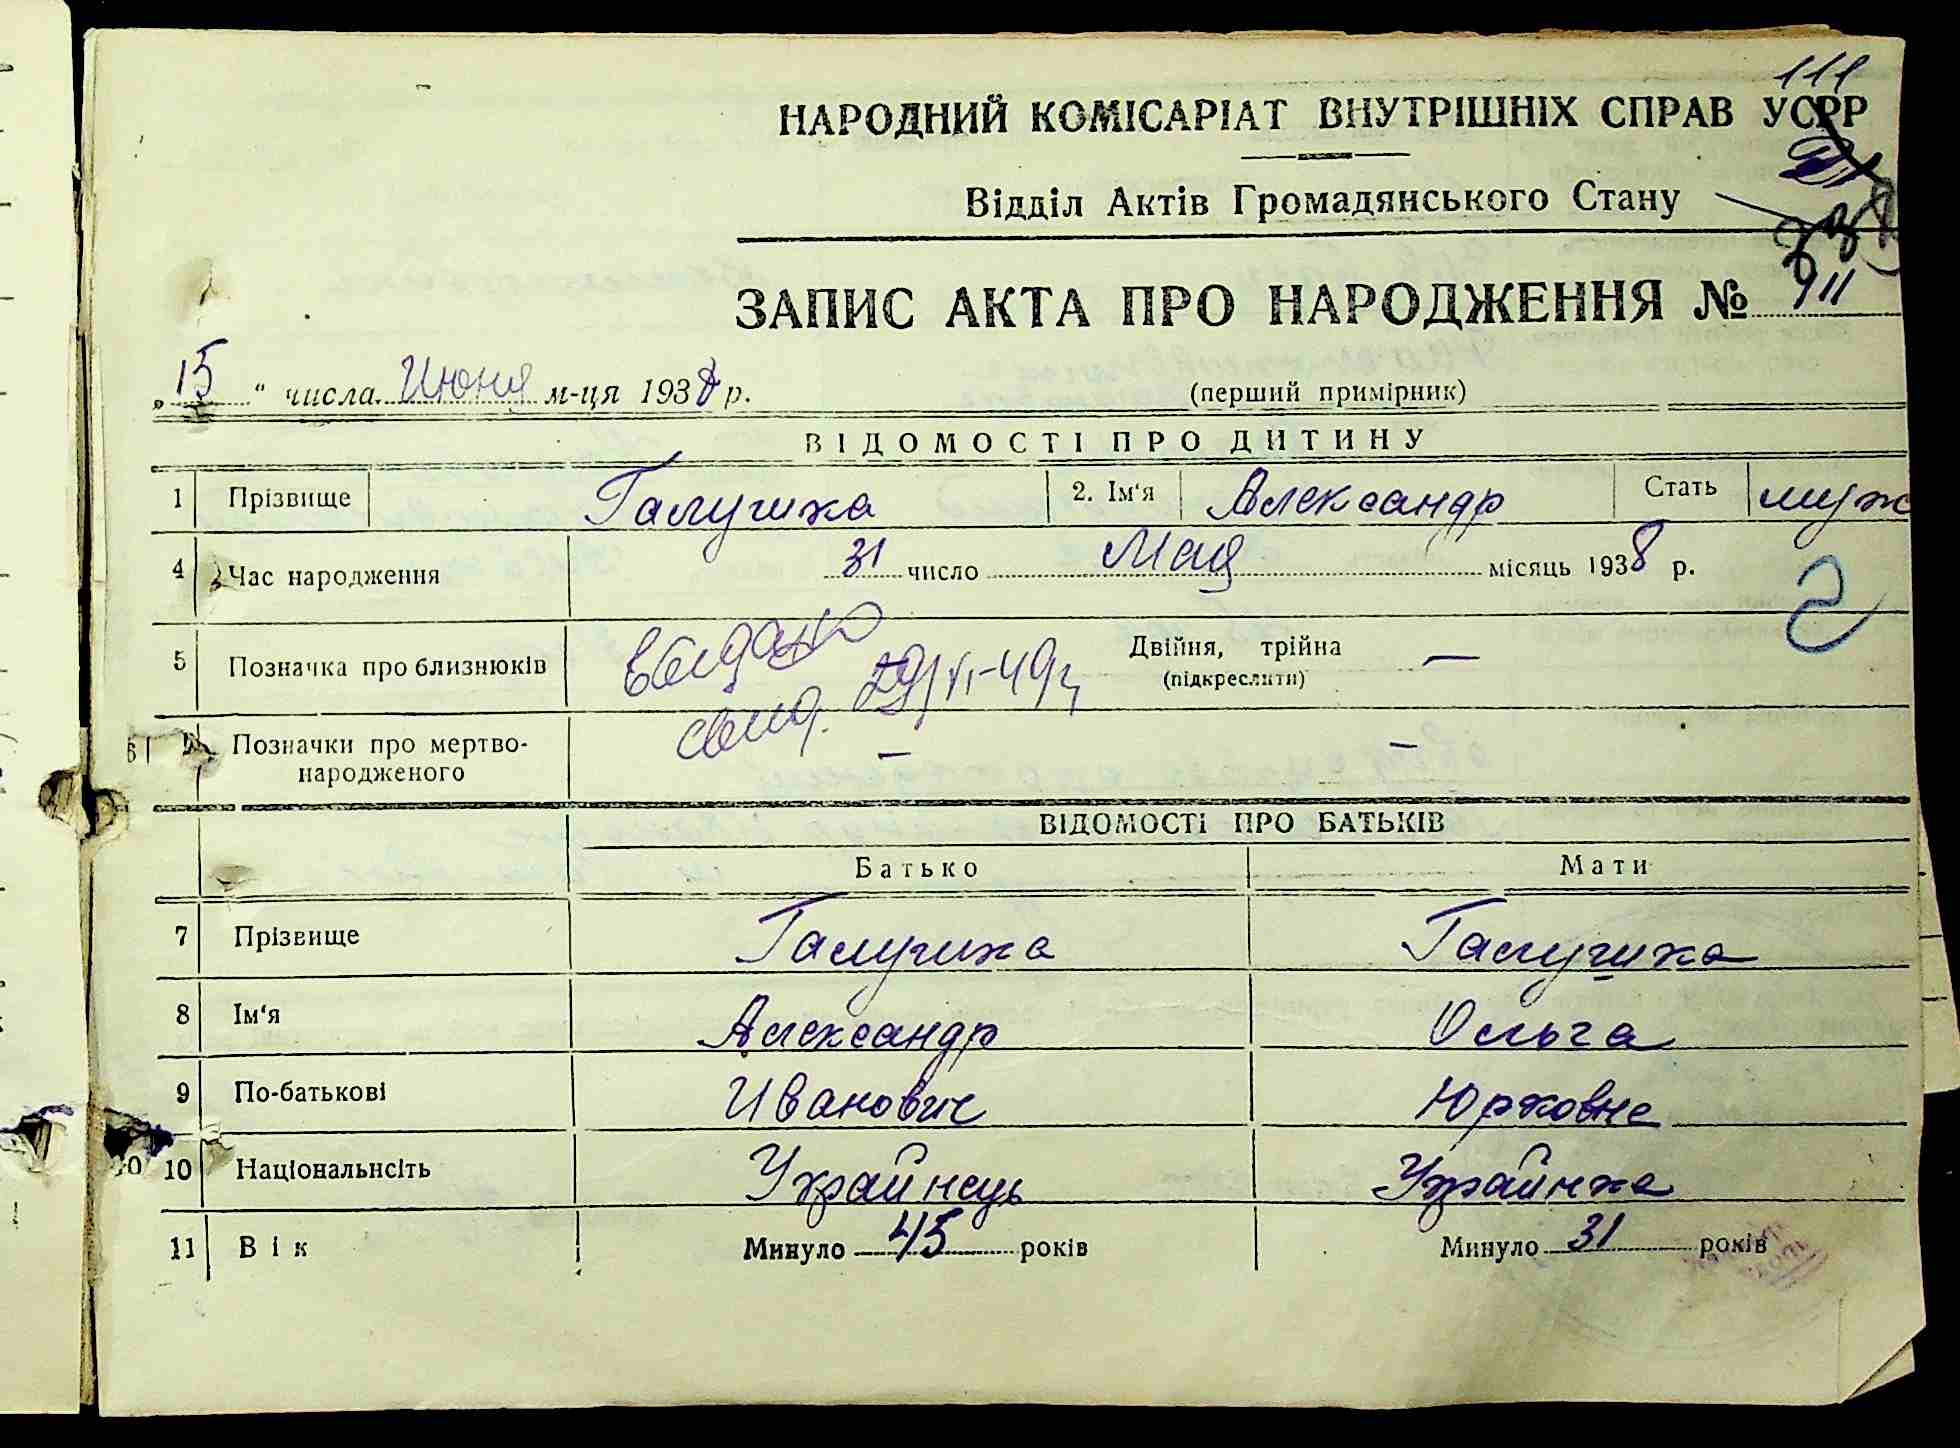 111
НАРОДНИЙ КОМІСАРІАТ ВНУТРІШНІХ СПРАВ УСРР
Відділ Актів Громадянського Стану
ЗАПИС АКТА ПРО НАРОДЖЕННЯ № 911
„15“ числа Июня м-ця 1938 р. (перший примірник)
ВІДОМОСТІ ПРО ДИТИНУ
1 Прізвище Галушка 2. Ім'я Александр Стать муж
4 Час народження 31 число Мая місяць 1938 р.
2
5 Позначка про близнюків Двійня, трійна —
(підкреслити)
видано
свид. 29/VI-49г
6 Позначки про мертво-
народженого — —
ВІДОМОСТІ ПРО БАТЬКІВ
Батько Мати
7 Прізвище Галушка Галушка
8 Ім'я Александр Ольга
9 По-батькові Иванович Юрковна
10 10 Національнсіть Украйнець Украйнка
11 Вік Минуло 45 років Минуло 31 років